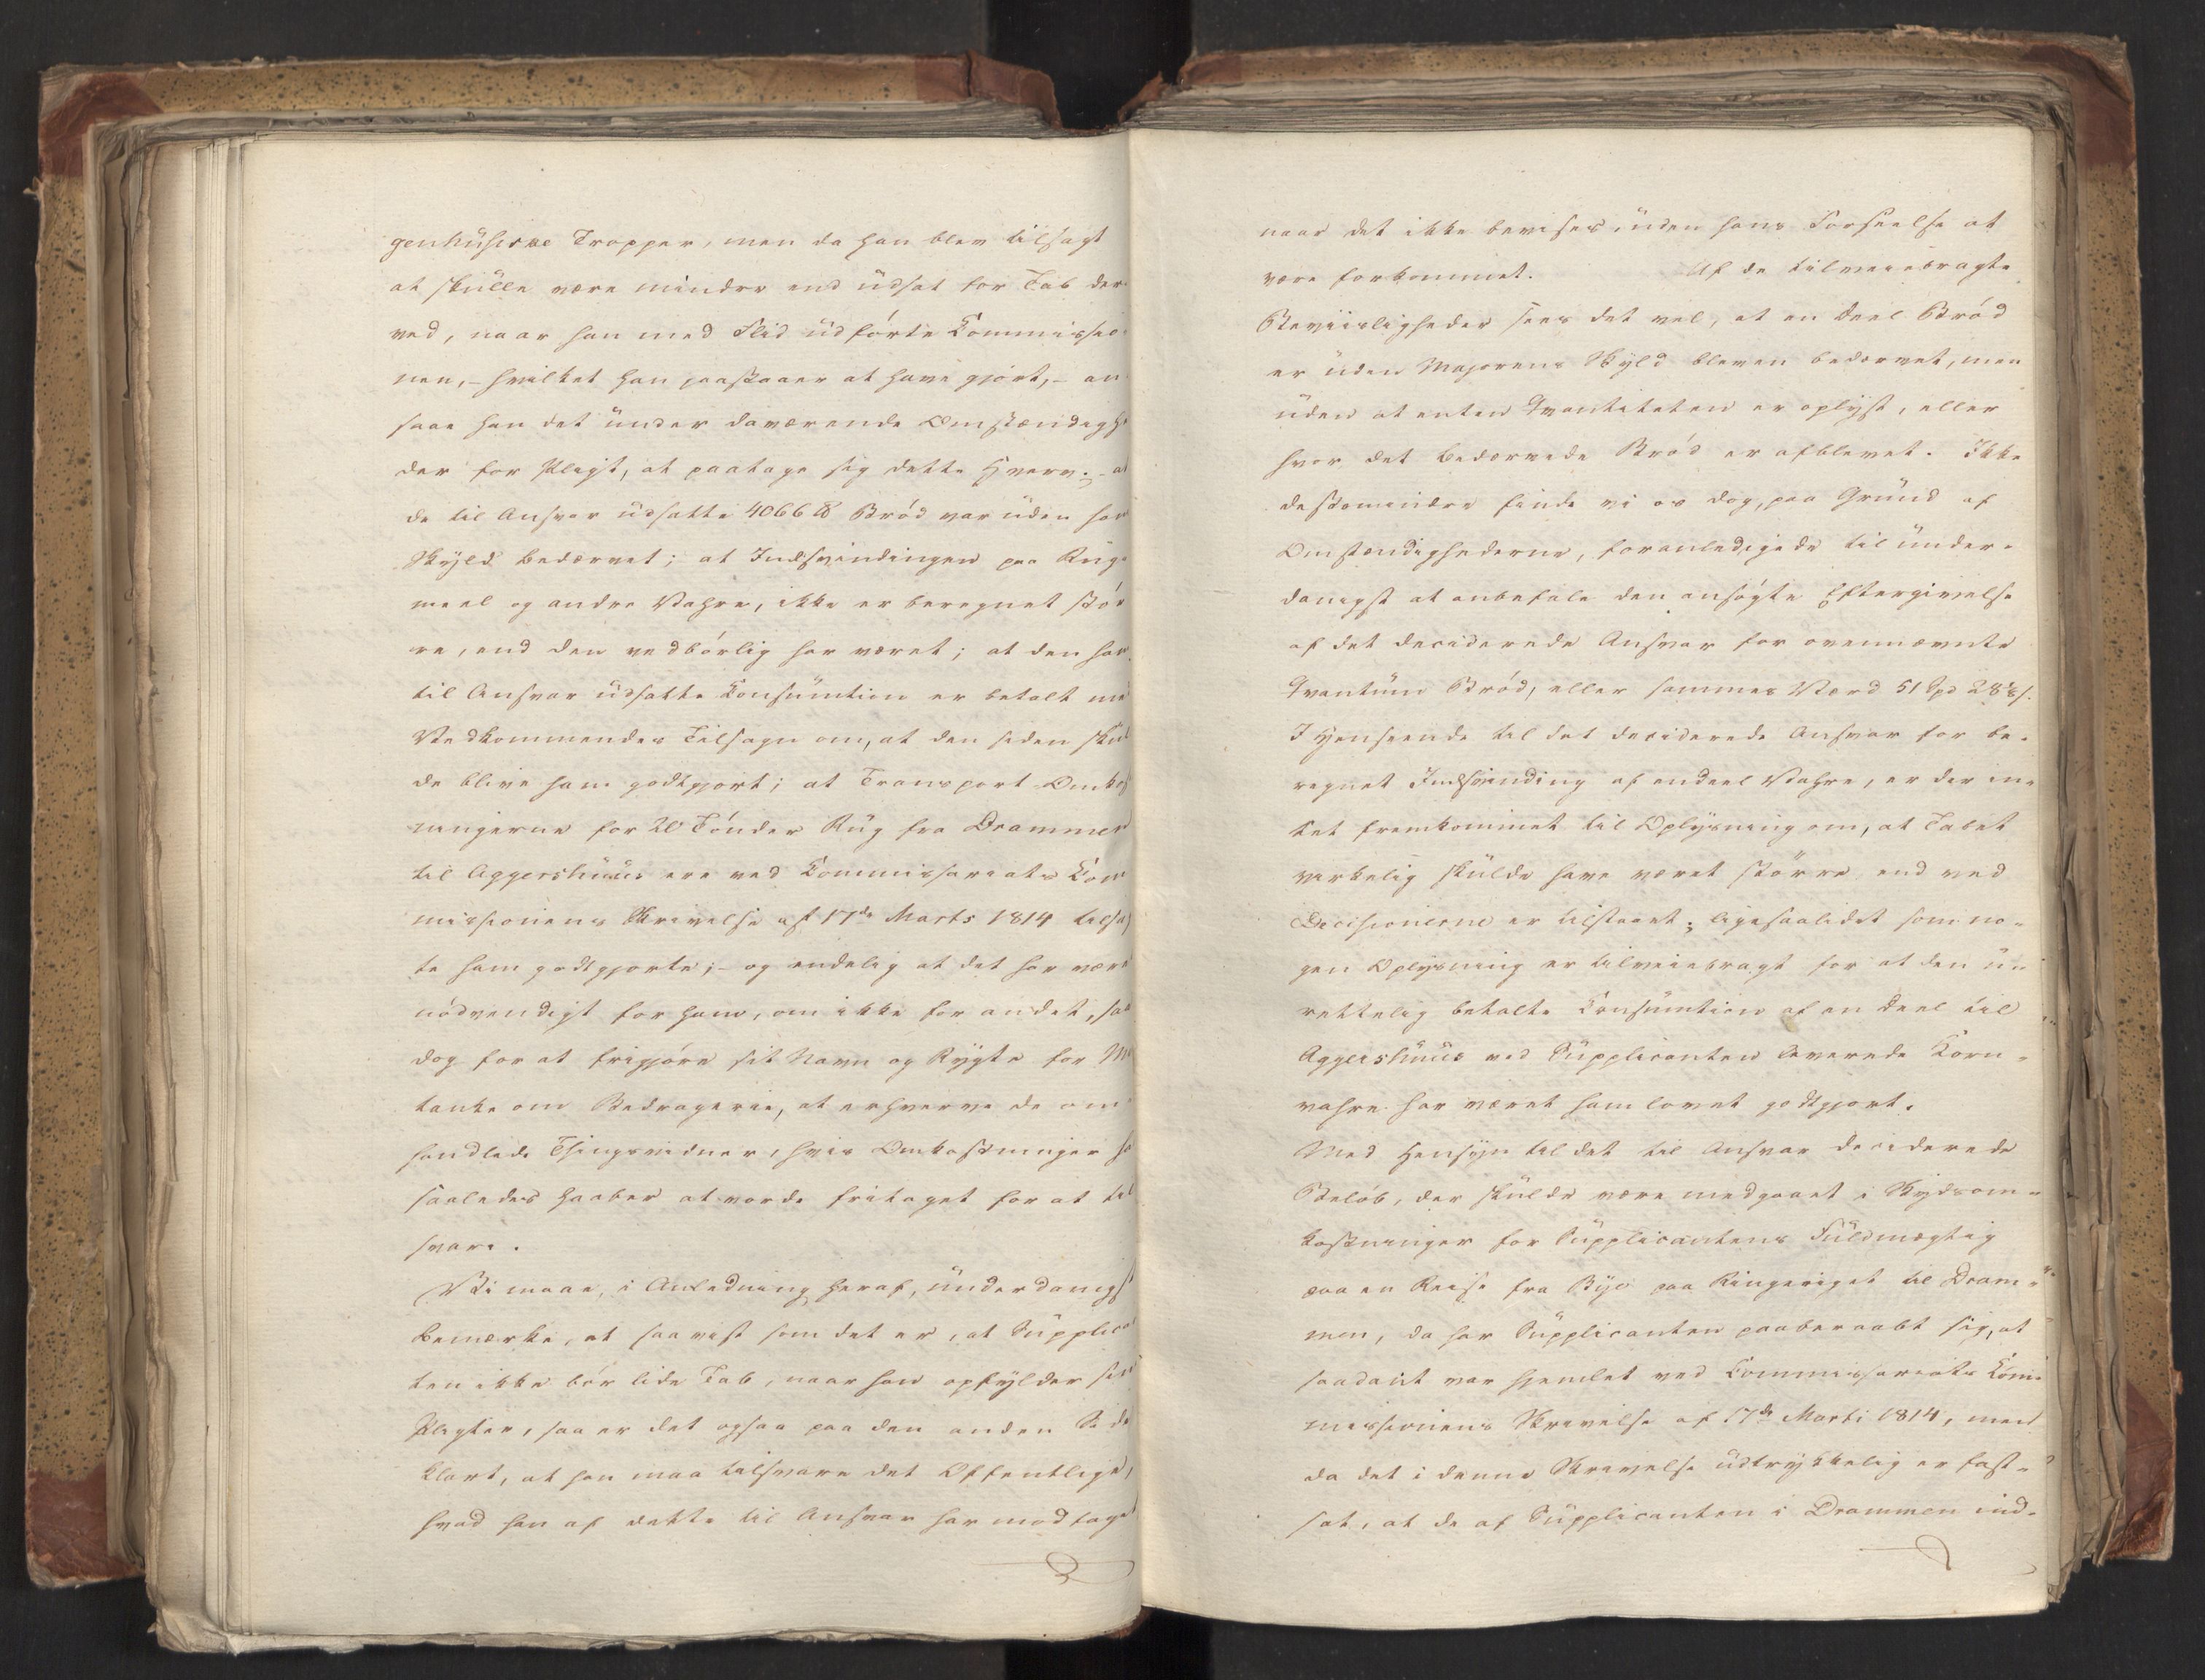 genhusiske Tropper, men da han blev tilsagt
at skulle være mindre end udsat for Tab der-
ved, naar han med Flid udførte Commissio-
nen, - hvilket han paastaaer at have gjort, - an-
saae han det under daværende Omstændighe
der for Pligt, at paatage sig dette Hverv; - at
de til Ansvar udsatte 4066 ℔ Brød var uden hans
Skyld bedærvet; at Indsvindingen paa Rug-
meel og andre Vahre, ikke er beregnet stør
re, end den vedbørlig har været; at den ham
til Ansvar udsatte Consumtion er betalt med
Vedkommendes Tilsagn om, at den siden skul
de blive ham godtgjort; at Transport-Omkost
ningerne for 20 Tønder Rug fra Drammen
til Aggershuus ere ved Commissariats Com
missionens Skrivelse af 17de Marts 1814 tilsag
te ham godtgjorte; - og endelig at det har været
nødvendigt for ham, om ikke for andet, saa
dog for at frigjøre sit Navn og Rygte for Mis
tanke om Bedragerie, at erhverve de om-
handlede Thingsvidner, hvis Omkostninger han
saaledes haaber at vorde fritaget for at til
svare.
Vi maae, i Anledning heraf, underdanigst
bemærke, at saavist som det er, at Supplican
ten ikke bør lide Tab, naar han opfylder sine
Pligter, saa er det ogsaa paa den anden Side
klart, at han maa tilsvare det Offentlige,
hvad han af dette til Ansvar har modtaget
naar det ikke bevises, uden hans Forseelse at
være forkommet. Af de tilveiebragte
Beviisligheder sees det vel, at en Deel Brød
er uden Majorens Skyld bleven bedærvet, men
uden at enten Qvantiteten er oplyst, eller
hvor det bedærvede Brød er afblevet. Ikke
destomindre finde vi os dog, paa Grund af
Omstændighederne, foranledigede til under-
danigst at anbefale den ansøgte Eftergivelse
af det deciderede Ansvar for ovennævnte
Qvantum Brød, eller sammes Værd 51 Spd 28 s.
I Henseende til det deciderede Ansvar for be-
regnet Indsvinding af endeel Vahre, er der in-
tet fremkommet til Oplysning om, at Tabet
virkelig skulde have været større, end ved
Decisionerne er tilstaaet; ligesaalidet som no-
gen Oplysning er tilveiebragt for at den u-
rettelig betalte Consumtion af en Deel til
Aggershuus ved Supplicanten leverede Korn-
vahre har været ham lovet godtgjort.
Med Hensyn til det til Ansvar deciderede
Beløb, der skulde være medgaaet i Skydsom-
kostninger for Supplicantens Fuldmægtig
paa en Reise fra Bye paa Ringeriget til Dram-
men, da har Supplicanten paaberaabt sig, at
saadant var hjemlet ved Commissariats Com-
missionens Skrivelse af 17de Marts 1814, men
da det i denne Skrivelse udtrykkelig er fast-
sat, at de af Supplicanten i Drammen ind-